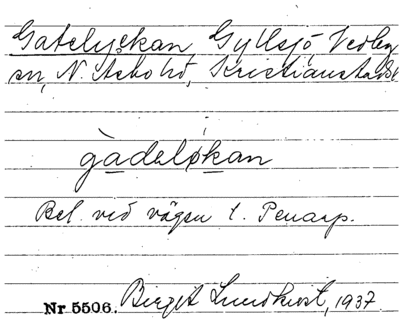 Gatelyckan, Gyllsjö, Vedby
sn, N. Åsbo hd, Kristianstads l.
gàdeløkan
Bel. vid vägen t. Penarp.
Nr 5506. Birgit Lundkvist, 1937.